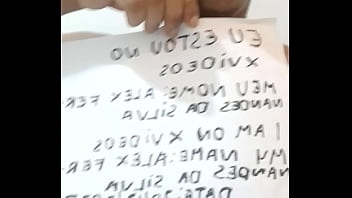 EU ESTOU NO
XVIDEOS
MEU NOME: ALEX FER
NANDES DA SILVA
I AM ON XVIDEOS
MY NAME: ALEX FER-
NANDES DA SILVA
DATE: